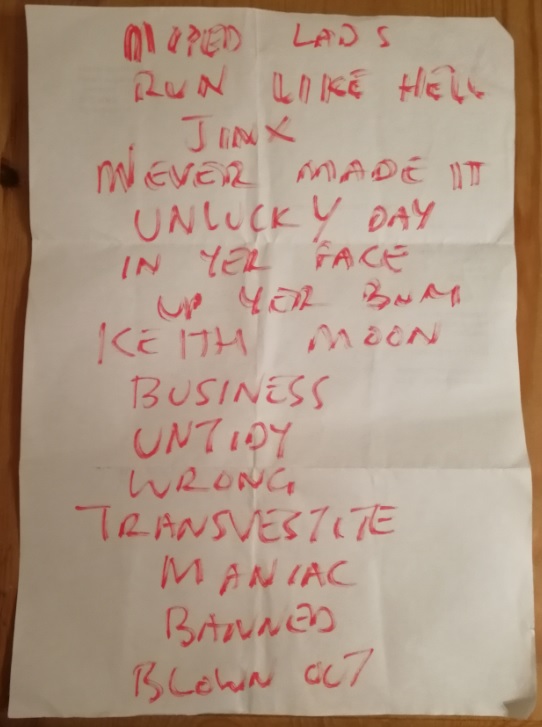 MOPED LADS
RUN LIKE HELL
JINX
NEVER MADE IT
UNLUCKY DAY
IN YER FACE
UP YER BUM
KEITH MOON
BUSINESS
UNTIDY
WRONG
TRANSVESTITE
MANIAC
BANNED
BLOWN OUT